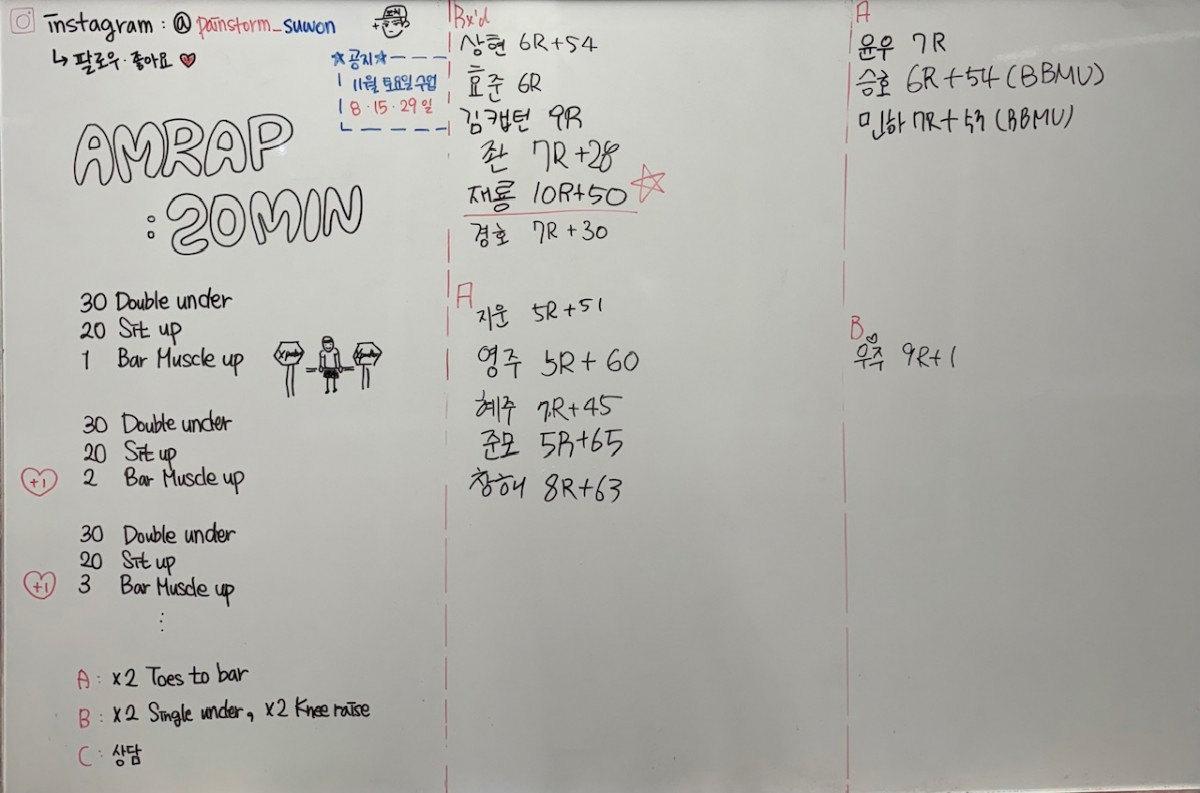 instagram : @painstorm_suwon
↳ 팔로우·좋아요 ♥
☆공지☆
11월 토요일 수업
8·15·29일
AMRAP
:20MIN
30 Double under
20 Sit up
1 Bar Muscle up
30 Double under
20 Sit up
+1 2 Bar Muscle up
30 Double under
20 Sit up
+1 3 Bar Muscle up
⋮
A: x2 Toes to bar
B: x2 Single under, x2 Knee raise
C: 상담
Rx'd
상현 6R+54
효준 6R
김캡턴 9R
좐 7R+28
재룡 10R+50 ☆
경호 7R+30
A
지운 5R+51
영주 5R+60
혜주 7R+45
준모 5R+65
창해 8R+63
A
윤우 7R
승호 6R+54 (BBMU)
민하 7R+53 (BBMU)
B
우주 9R+1